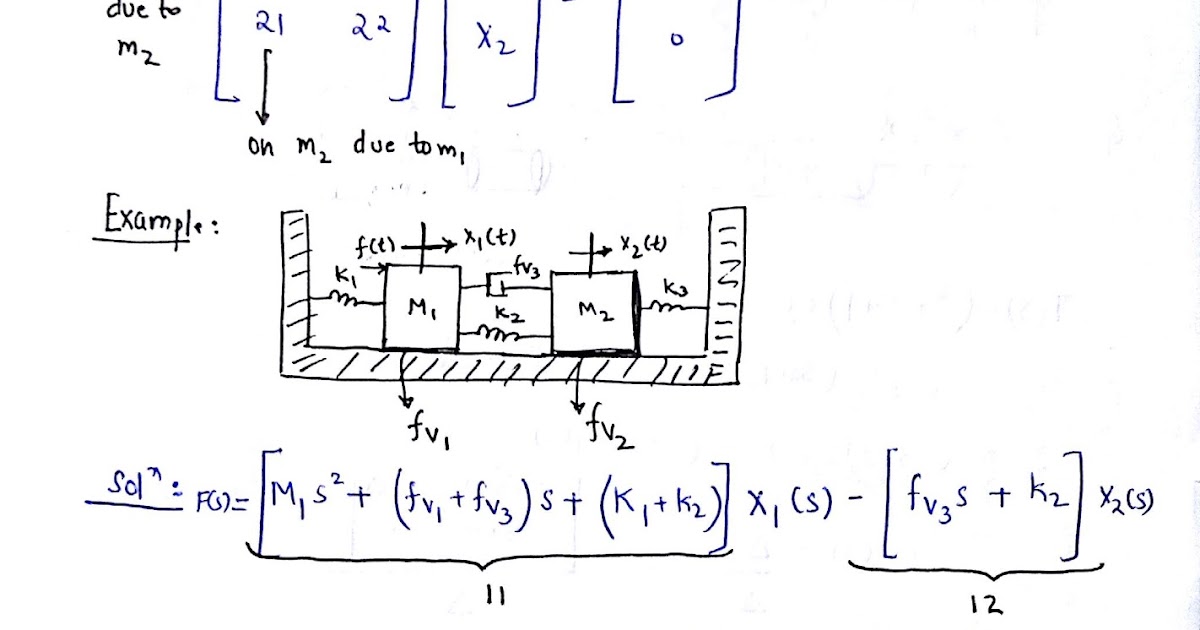 due to
m₂
21 22
X₂
0
on m₂ due to m₁
Example:
f(t) x₁(t)
x₂(t)
K₁
fv₃
K₂
K₃
M₁
M₂
fv₁
fv₂
Solⁿ: F(s)= [M₁s² + (fv₁ + fv₃) s + (K₁ + k₂)] X₁(s) − [fv₃s + k₂] X₂(s)
11
12